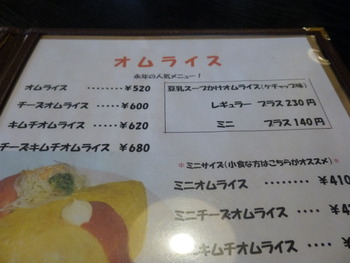 オムライス
永年の人気メニュー！
オムライス ・・・・・・・・¥520
チーズオムライス ・・・¥600
キムチオムライス ・・・¥620
チーズキムチオムライス ¥680
豆乳スープかけオムライス(ケチャップ味)
レギュラー プラス 230円
ミニ プラス 140円
*ミニサイズ(小食な方はこちらがオススメ)
ミニオムライス ・・・・¥410
ミニチーズオムライス ・・・
キムチオムライス ・・・